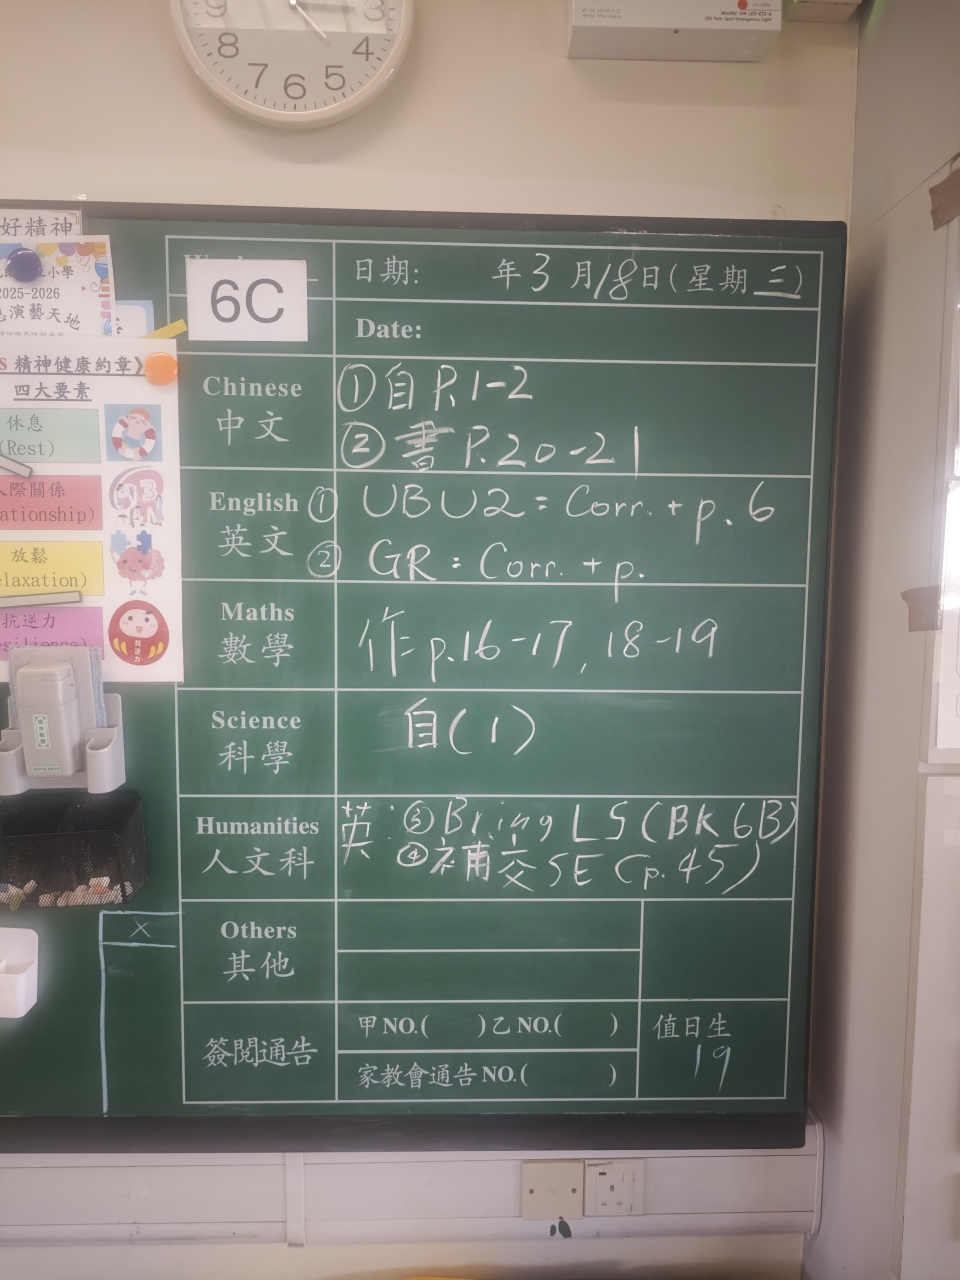 3
4
5
6
7
8
9
Model:
LED Twin-Spot Emergency Light
好精神
小學
2025-2026
演藝天地
精神健康約章》
四大要素
休息
(Rest)
人際關係
ationship)
放鬆
elaxation)
抗逆力
抗逆力
6C
日期: 年3月18日(星期三)
Date:
Chinese
中文
①自 P.1-2
②書 P.20-21
English
英文
① UBU2 = Corr. + p. 6
② GR : Corr. + p.
Maths
數學
作 p.16-17, 18-19
Science
科學
自(1)
Humanities
人文科
英: ③Bring LS (BK 6B)
④補交 SE (p.45)
Others
其他
X
簽閱通告
甲 NO.( )乙 NO.( )
家教會通告 NO.( )
值日生
19